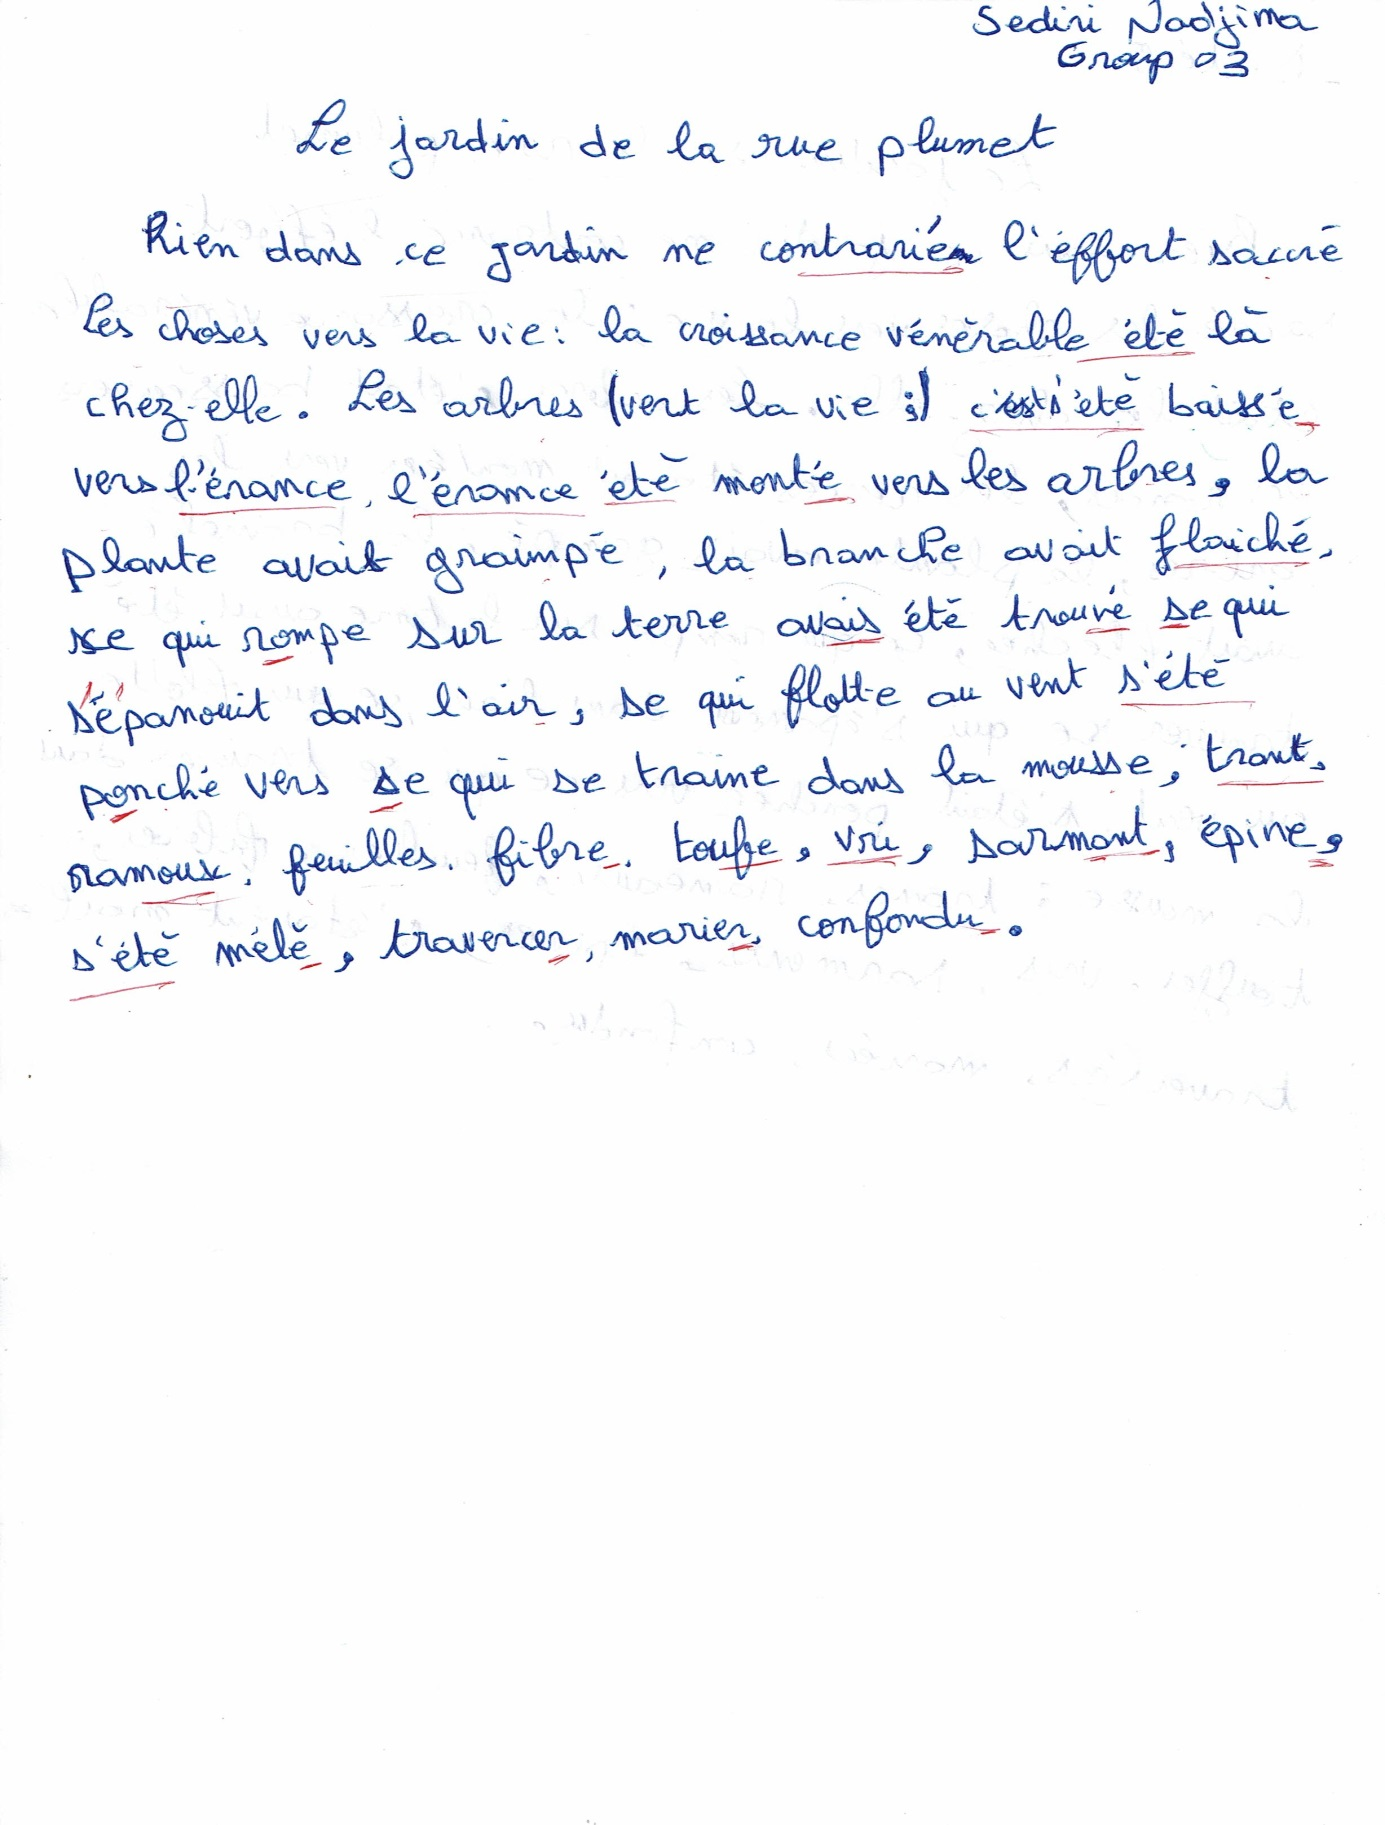 Sediri Nadjima
Group 03
Le jardin de la rue plumet
Rien dans ce jardin ne contrariéen l'éffort sacré
Les choses vers la vie : la croissance vénérable été là
chez-elle. Les arbres (vert la vie :) s'été baissé
vers l'érance, l'érance été monté vers les arbres, la
plante avait graimpé, la branche avait flaiché,
ce qui rompe sur la terre avais été trouvé se qui
s'épanouit dans l'air, se qui flotte au vent s'été
ponché vers se qui se traine dans la mousse ; tront,
ramoux, feuilles. fibre. toufe, vri, sarmont, épine,
s'été mélé, travercer, marier, confondu.